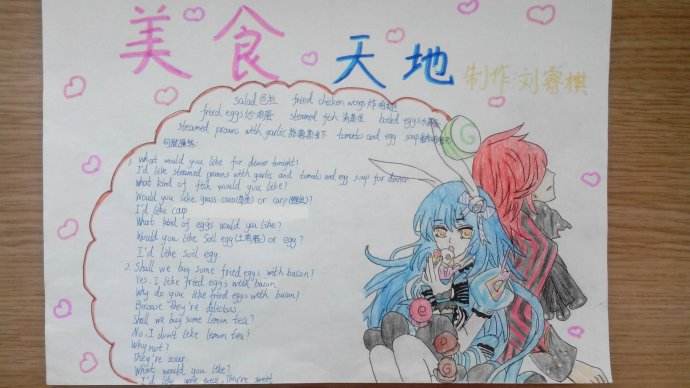 美食天地
制作 刘睿棋
salad fried chicken wings
fried eggs steamed fish 清蒸鱼 boiled eggs
steamed prawns with garlic tomato and egg soup
1. What would you like for dinner tonight?
I'd like steamed prawns with garlic and tomato and egg soup for dinner
What kind of fish would you like?
Would you like grass carp(草鱼) or carp
I'd like carp
What kind of eggs would you like?
Would you like soil egg(土鸡蛋) or egg?
I'd like soil egg.
2. Shall we buy some fried eggs with bacon?
Yes. I like fried eggs with bacon
Why do you like fried eggs with bacon?
Because they're delicious.
Shall we buy some lemon tea?
No. I don't like lemon tea?
Why not?
They're sour.
What would you like?
I'd like They're sweet